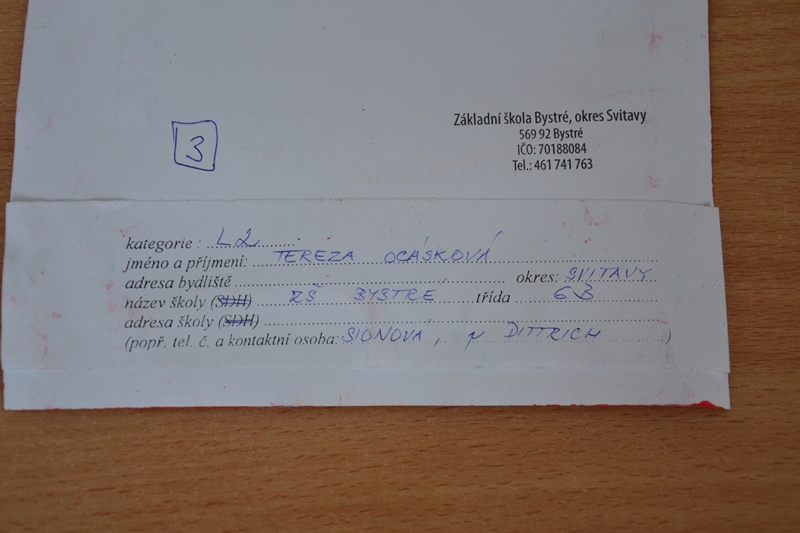 Základní škola Bystré, okres Svitavy
569 92 Bystré
IČO: 70188084
Tel.: 461 741 763
3
kategorie : L2
jméno a příjmení: TEREZA OCÁSKOVÁ
adresa bydliště okres: SVITAVY
název školy (SDH) ZŠ BYSTRÉ třída 6B
adresa školy (SDH)
(popř. tel. č. a kontaktní osoba: SIONOVÁ, DITTRICH )